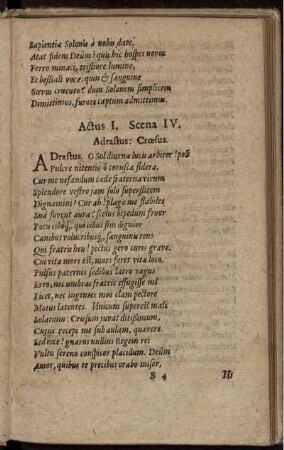 Sapientiæ Solonis à nobis date,
Atat fidem Deûm! quis hic hospes novus
Ferro minaci, tristiore lumine,
Et bestiali voce, quin & sanguine
Sævus cruento? dum Solonem simplicem
Dimittimus, furore captum admittimus.
Actus I. Scena IV.
Adrastus: Crœsus.
ADrastus. O Sol diurnæ lucis arbiter! pol
Pulcre nitentis ô corusca sidera,
Cur me nefandum cæde fraterna virum
Splendore vestro jam solo superstitem
Dignamini? Cur ah! plagæ me stabiles
Sud forent auræ? scelus bipedum fruor
Potu ciboq;, qui cibus sim dignior
Canibus volucribusq;, sanguinu rens
Qui fratris heu! pectus gero curis grave,
Cui vita mors est, mors foret vita loco.
Pulsus paternis sedibus latro vagus
Erro, nec umbras fratris effugisse mi
Licet, nec ingentes meo clam pectore
Motus latentes. Unicum superest mali
Solatium: Crœsum juvat ditissimum,
Cujus recepi me sub aulam, quærere.
Sed ecce! gnarus nullius Regem rei
Vultu sereno conspicor placidum. Deûm
Amor, quibus te precibus orabo miser,
B 4